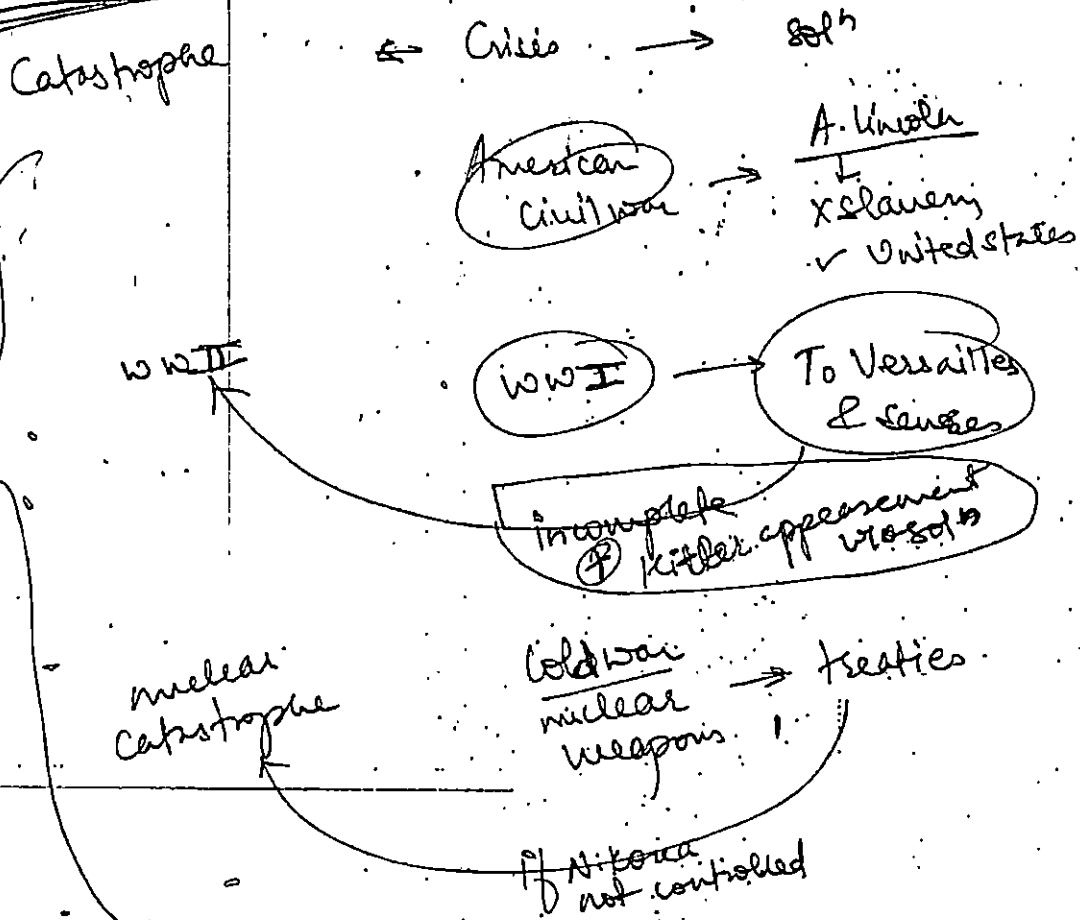 Catastrophe ← Crisis → solⁿ
American
Civil war → A. Lincoln
↓
x slavery
✓ United states
WW II
WW I → To Versailles
&
incomplete
+ Hitler appeasement
solⁿ
nuclear
catastrophe
Cold war
nuclear
weapons. → treaties.
if N.Korea
not controlled